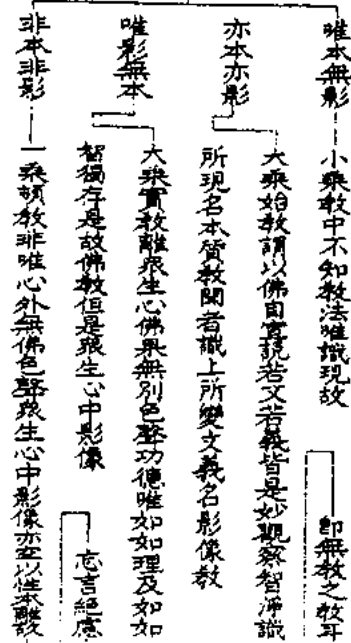 唯本無影
小乘教中不知教法唯識現故
亦本亦影
大乘始教謂以佛自實說若文若義皆是妙觀察智淨識
所現名本質教聞者識上所變文義名影像教
唯影無本
大乘實教離眾生心佛果無別色聲功德唯如如理及如如
智獨存是故佛教但是眾生心中影像
非本非影
一乘頓教非唯心外無佛色聲眾生心中影像亦空以性本離故
忘言絕慮
即無教之教耳